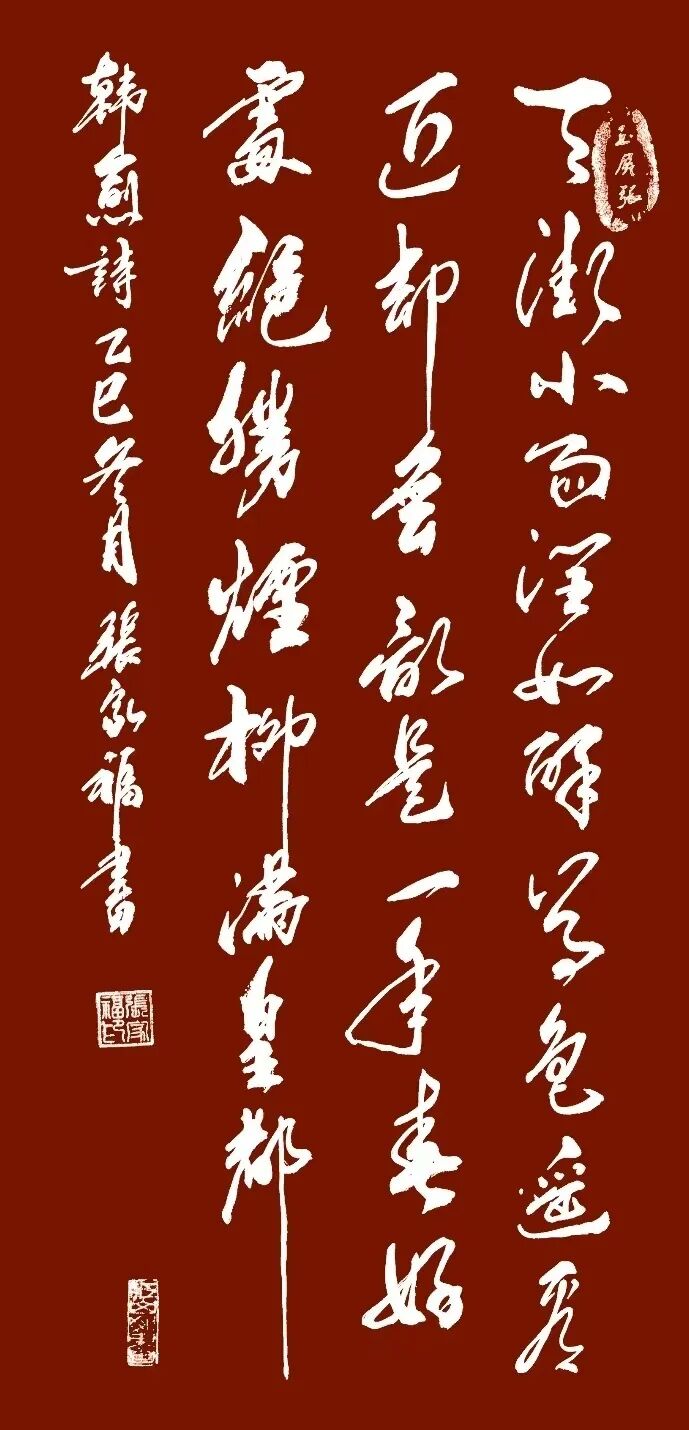 天街小雨潤如酥草色遥看
近却無最是一年春好
處絕勝煙柳滿皇都
韓愈詩乙巳冬月張家福書
玉屏張
張家福印